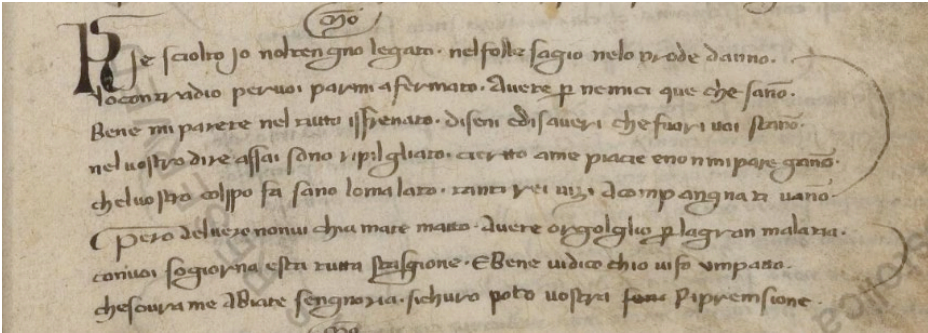 Se sciolto io nol tengno legato · nel folle sagio nelo prode danno ·
locontradio per voi parmi afermato · Avere p nemici que che sano ·
Bene mi parete nel tutto isfrenato · diseni edisaveri che fuori voi stano ·
nel vostro dire assai sono ripilgliato · cierto ame piacie enon mi pare gano ·
chel vostro colpo fa sano lo malato · tanti rei · Acompangnati vano ·
Pero delvero nonvi chiamate matto · Avere orgolglio p lagran malatia ·
convoi sogiorna esta tutta stasgione · E Bene vidico chio vifo umpatto ·
che sovra me Abiate sengnoria · sichuro posto vostra riprensione ·